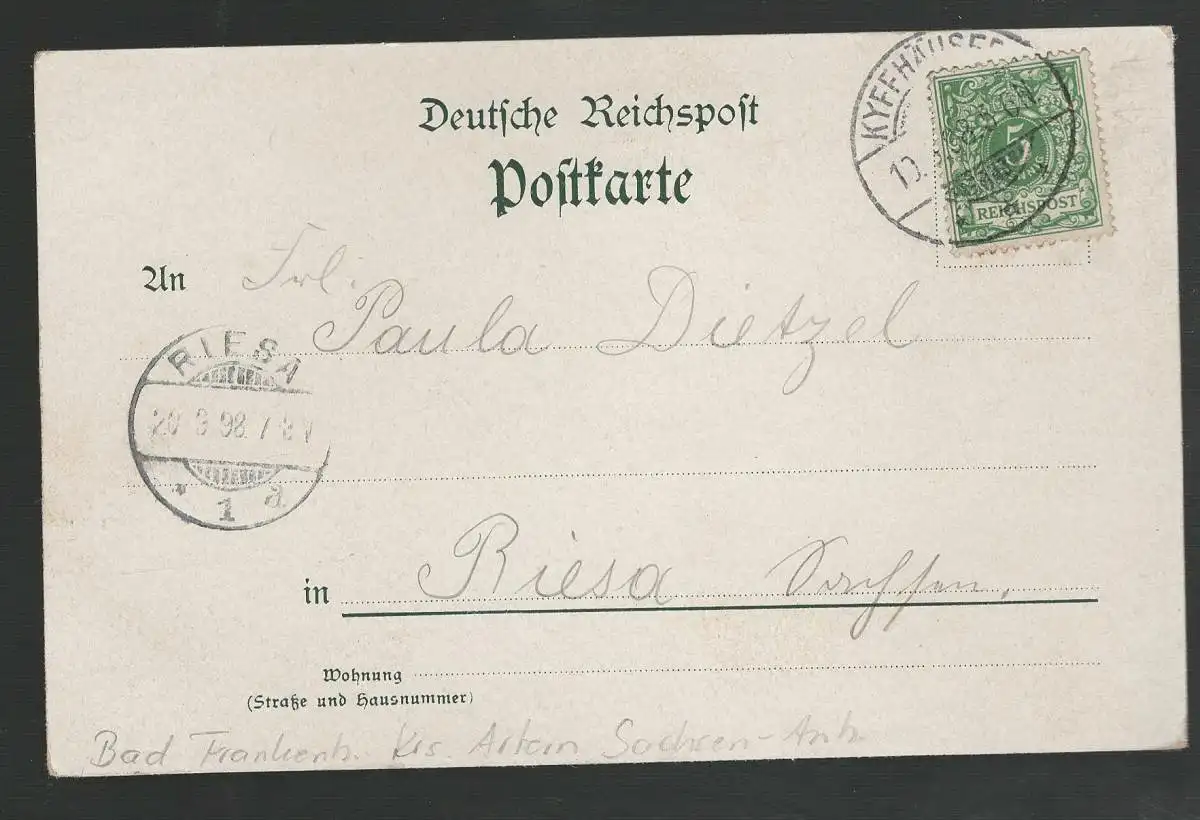 KYFFHÄUSER
5
REICHSPOST
Deutsche Reichspost
Postkarte
An Frl. Paula Dietzel
RIESA
20 9 98 7 8 V
* 1 a
in Riesa Sachsen,
Wohnung
(Straße und Hausnummer)
Bad Frankenh. Krs. Artern Sachsen-Anh.